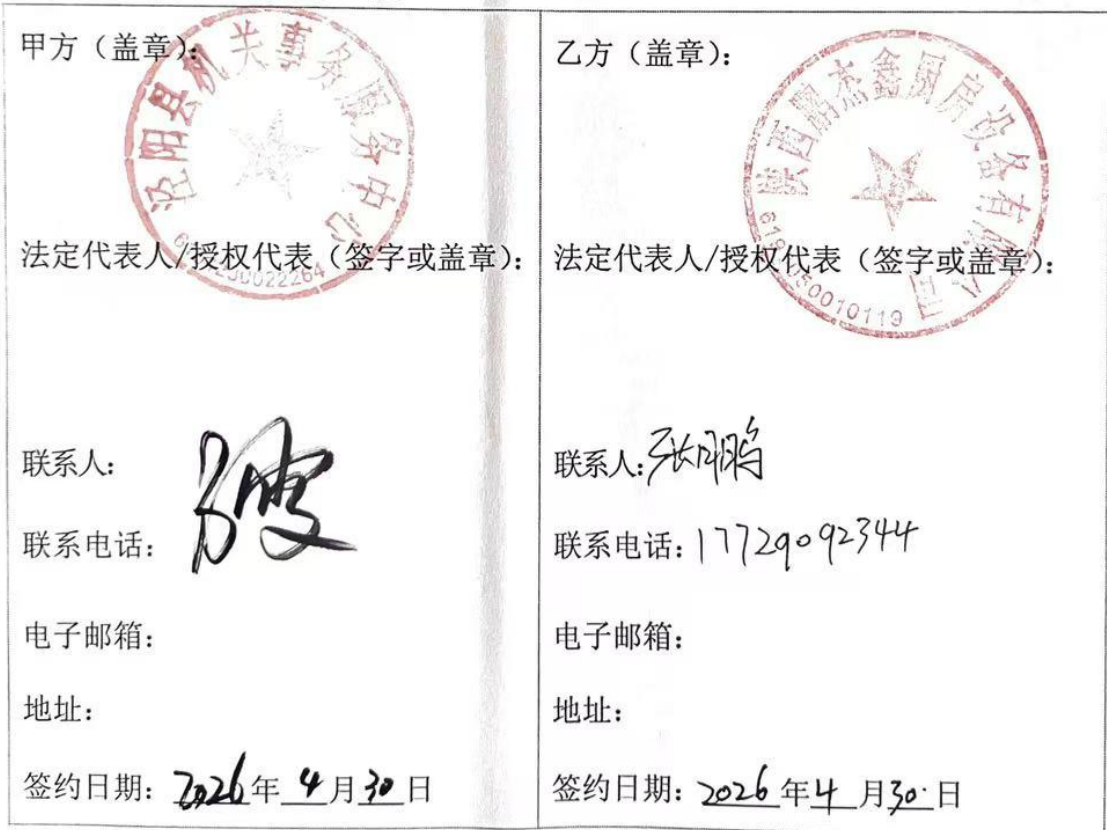 甲方（盖章）：
泾阳县机关事务服务中心
法定代表人/授权代表（签字或盖章）：
联系人：
联系电话：
电子邮箱：
地址：
签约日期：2026年4月30日
乙方（盖章）：
陕西鹏杰鑫厨房设备有限公司
法定代表人/授权代表（签字或盖章）：
联系人：张鹏
联系电话：17729092344
电子邮箱：
地址：
签约日期：2026年4月30日